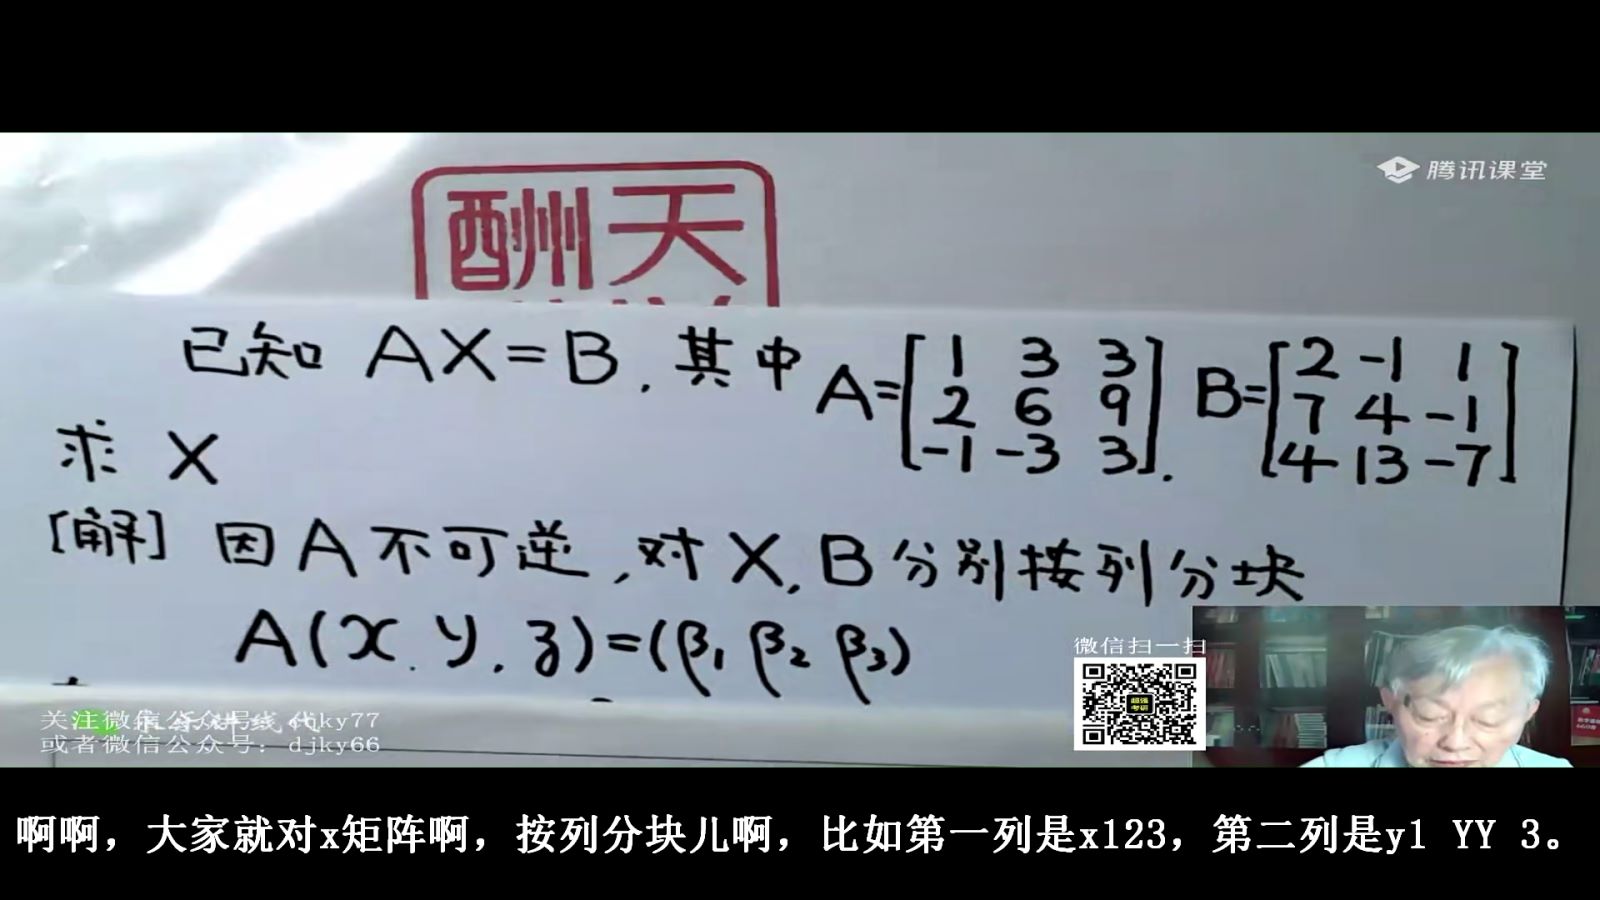 腾讯课堂
酬天
已知 AX=B, 其中 A=[1 3 3; 2 6 9; -1 -3 3]. B=[2 -1 1; 7 4 -1; 4 13 -7]
求 X
[解] 因 A 不可逆, 对 X, B 分别按列分块
A(x, y, z)=(β₁ β₂ β₃)
微信扫一扫
关注微信公众号: djky77
或者微信公众号: djky66
啊啊，大家就对x矩阵啊，按列分块儿啊，比如第一列是x123，第二列是y1 YY 3。